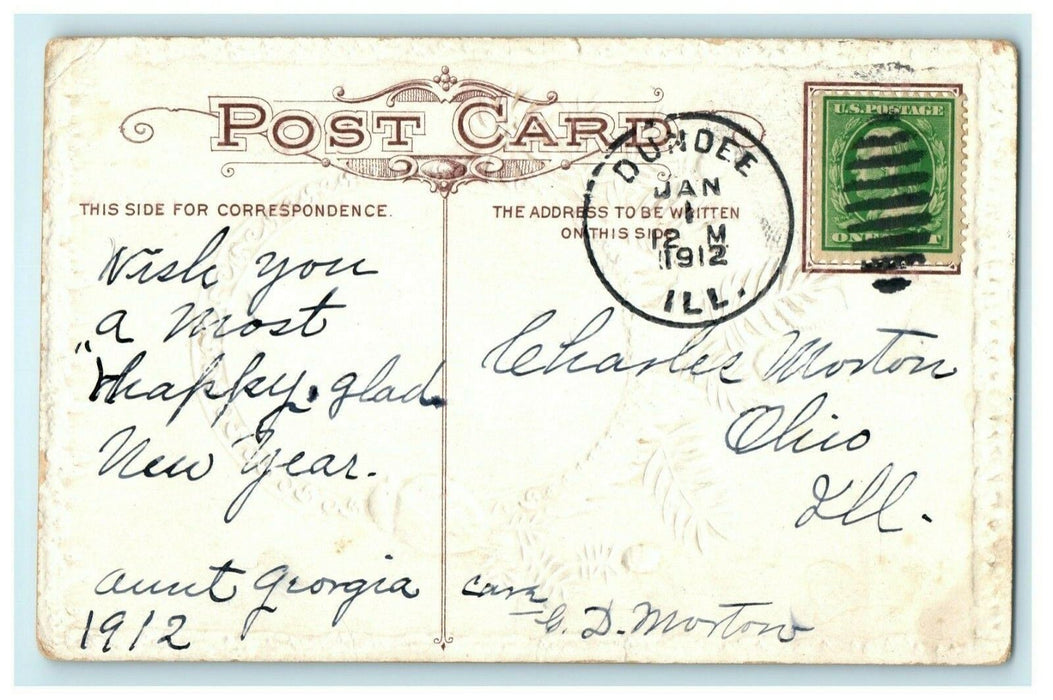 POST CARD
THIS SIDE FOR CORRESPONDENCE.
THE ADDRESS TO BE WRITTEN
ON THIS SIDE
DUNDEE
JAN
1
12 M
1912
ILL.
U.S. POSTAGE
ONE CENT
Wish you
a most
"happy, glad
New Year.
Aunt Georgia
1912
Charles Morton
Ohio
Ill.
Care
C. D. Morton